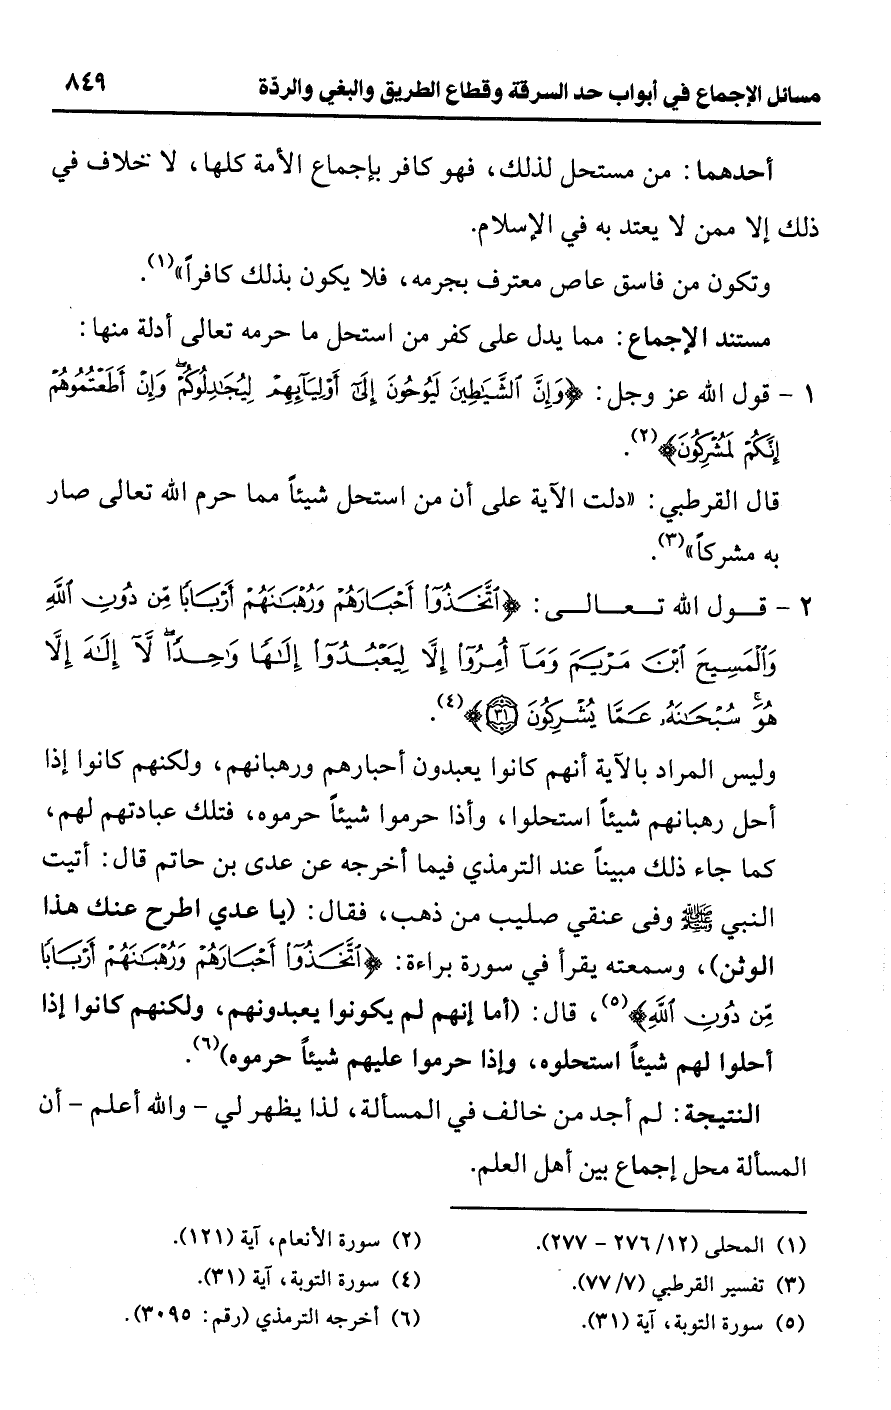 مسائل الإجماع في أبواب حد السرقة وقطاع الطريق والبغي والردّة ٨٤٩
أحدهما: من مستحل لذلك، فهو كافر بإجماع الأمة كلها، لا خلاف في
ذلك إلا ممن لا يعتد به في الإسلام.
وتكون من فاسق عاص معترف بجرمه، فلا يكون بذلك كافراً»(١).
مستند الإجماع: مما يدل على كفر من استحل ما حرمه تعالى أدلة منها:
١ - قول الله عز وجل: ﴿وَإِنَّ ٱلشَّيَٰطِينَ لَيُوحُونَ إِلَىٰٓ أَوْلِيَآئِهِمْ لِيُجَٰدِلُوكُمْ ۖ وَإِنْ أَطَعْتُمُوهُمْ
إِنَّكُمْ لَمُشْرِكُونَ﴾(٢).
قال القرطبي: «دلت الآية على أن من استحل شيئاً مما حرم الله تعالى صار
به مشركاً»(٣).
٢ - قول الله تعالى: ﴿ٱتَّخَذُوٓا۟ أَحْبَارَهُمْ وَرُهْبَٰنَهُمْ أَرْبَابًا مِّن دُونِ ٱللَّهِ
وَٱلْمَسِيحَ ٱبْنَ مَرْيَمَ وَمَآ أُمِرُوٓا۟ إِلَّا لِيَعْبُدُوٓا۟ إِلَٰهًا وَٰحِدًا ۖ لَّآ إِلَٰهَ إِلَّا
هُوَ ۚ سُبْحَٰنَهُۥ عَمَّا يُشْرِكُونَ ٣١﴾(٤).
وليس المراد بالآية أنهم كانوا يعبدون أحبارهم ورهبانهم، ولكنهم كانوا إذا
أحل رهبانهم شيئاً استحلوا، وأذا حرموا شيئاً حرموه، فتلك عبادتهم لهم،
كما جاء ذلك مبيناً عند الترمذي فيما أخرجه عن عدى بن حاتم قال: أتيت
النبي ﷺ وفى عنقي صليب من ذهب، فقال: (يا عدي اطرح عنك هذا
الوثن)، وسمعته يقرأ في سورة براءة: ﴿ٱتَّخَذُوٓا۟ أَحْبَارَهُمْ وَرُهْبَٰنَهُمْ أَرْبَابًا
مِّن دُونِ ٱللَّهِ﴾(٥)، قال: (أما إنهم لم يكونوا يعبدونهم، ولكنهم كانوا إذا
أحلوا لهم شيئاً استحلوه، وإذا حرموا عليهم شيئاً حرموه)(٦).
النتيجة: لم أجد من خالف في المسألة، لذا يظهر لي - والله أعلم - أن
المسألة محل إجماع بين أهل العلم.
(١) المحلى (١٢/ ٢٧٦ - ٢٧٧). (٢) سورة الأنعام، آية (١٢١).
(٣) تفسير القرطبي (٧/ ٧٧). (٤) سورة التوبة، آية (٣١).
(٥) سورة التوبة، آية (٣١). (٦) أخرجه الترمذي (رقم: ٣٠٩٥).